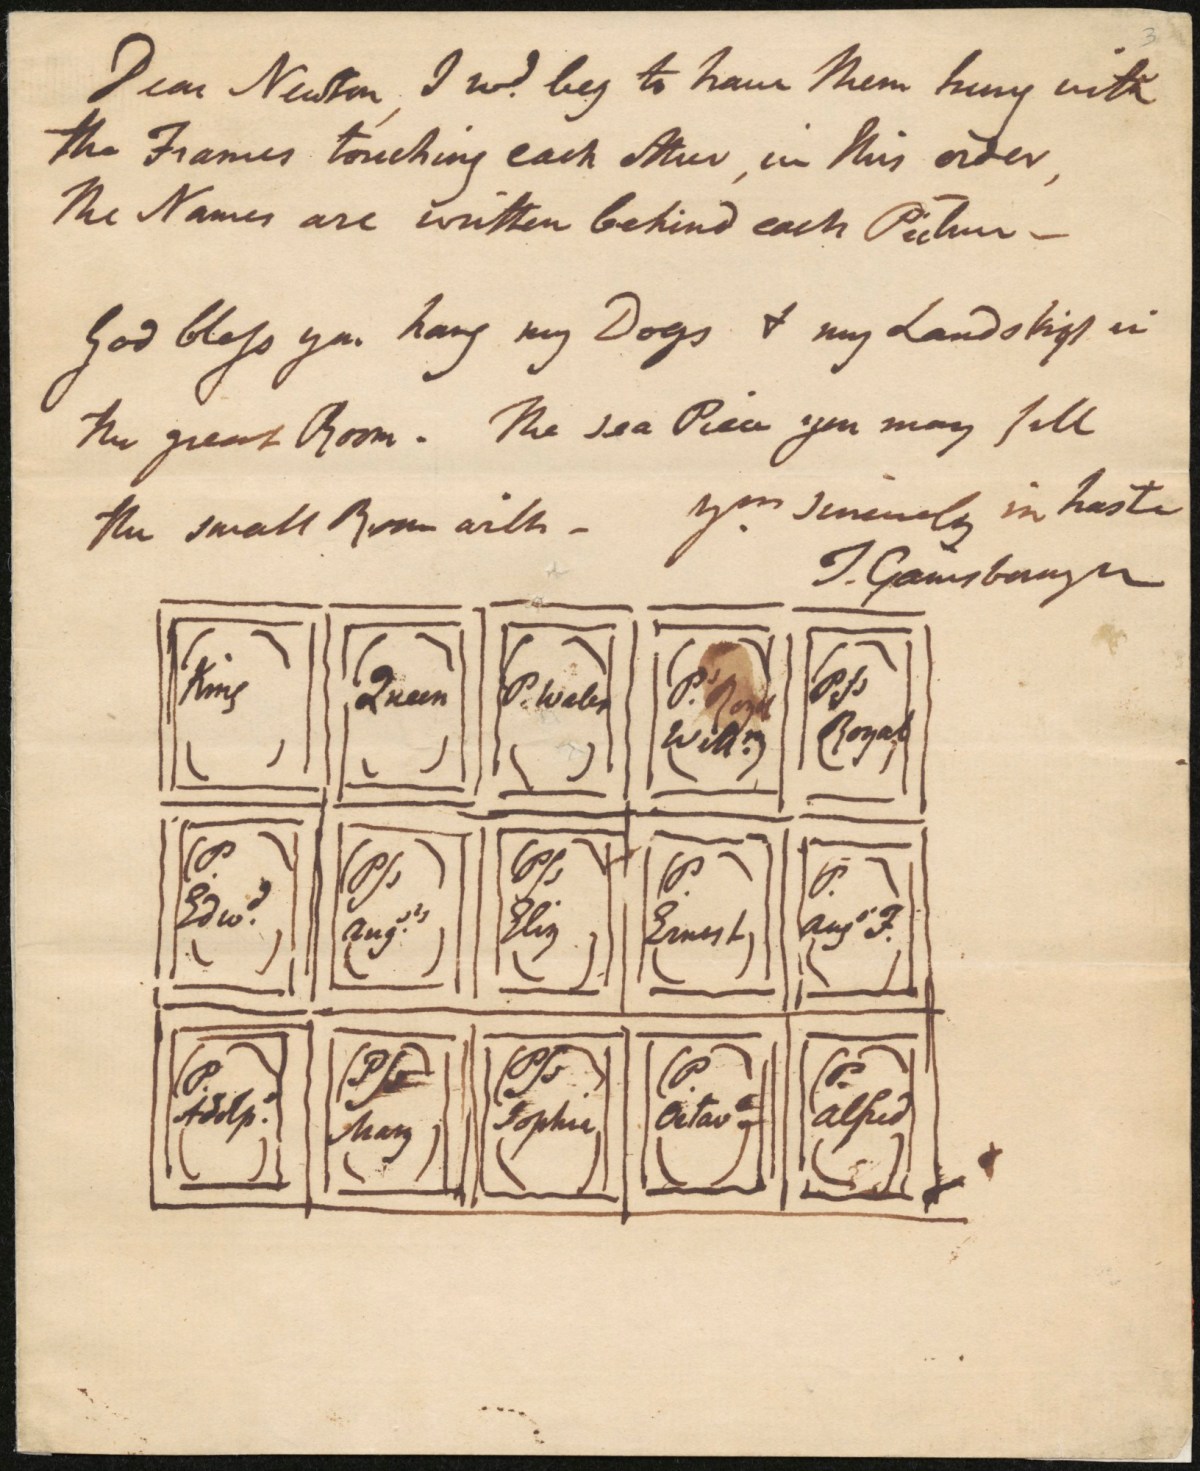 3
Dear Newton, I wd. beg to have them hung with
the Frames touching each other, in this order,
the Names are written behind each Picture —
God bless you hang my Dogs & my Landskip in
the great Room. The sea Piece you may fill
the small Room with — yrs. sincerely in haste
T. Gainsborough
King
Queen
P. Wales
P. Royal
Willm.
Pss
Royal
P.
Edwd.
Pss
Augts.
Pss
Eliz
P.
Ernest
P.
Augs. F.
P.
Adolps.
Pss
Mary
Pss
Sophia
P.
Octavs
P.
Alfred